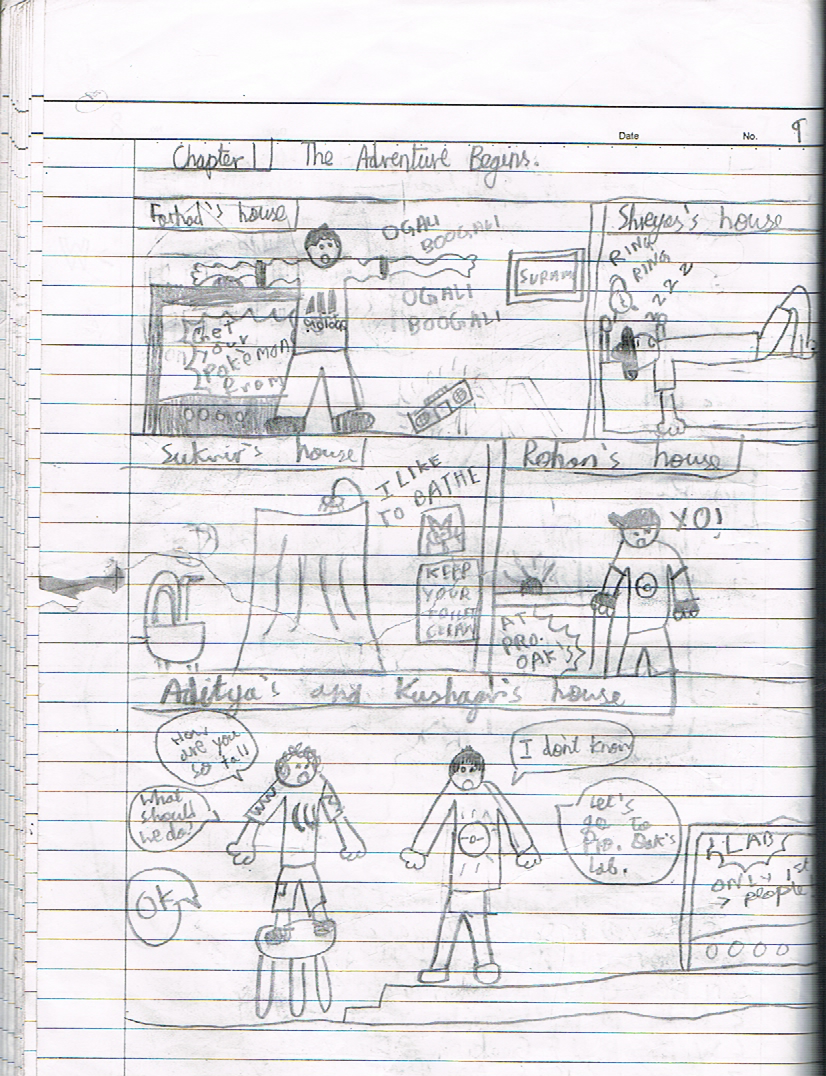 Date
No. 9
Chapter 1 The Adventure Begins.
Farhad's house
OGALI
BOOGALI
OGALI
BOOGALI
Get
Your
Pokemon
From
Shreyas's house
RING
RING
ZZZ
Sukvir's house
I LIKE
TO BATHE
KEEP
YOUR
TOILET
CLEAN
Rohan's house
YO!
AT
PRO.
OAK'S
Aditya's and Kushagr's house
How
are you
so tall
I don't know
What
should
we do?
Let's
go to
Pro. Oak's
Lab.
OK
LAB
ONLY 1st
7 people